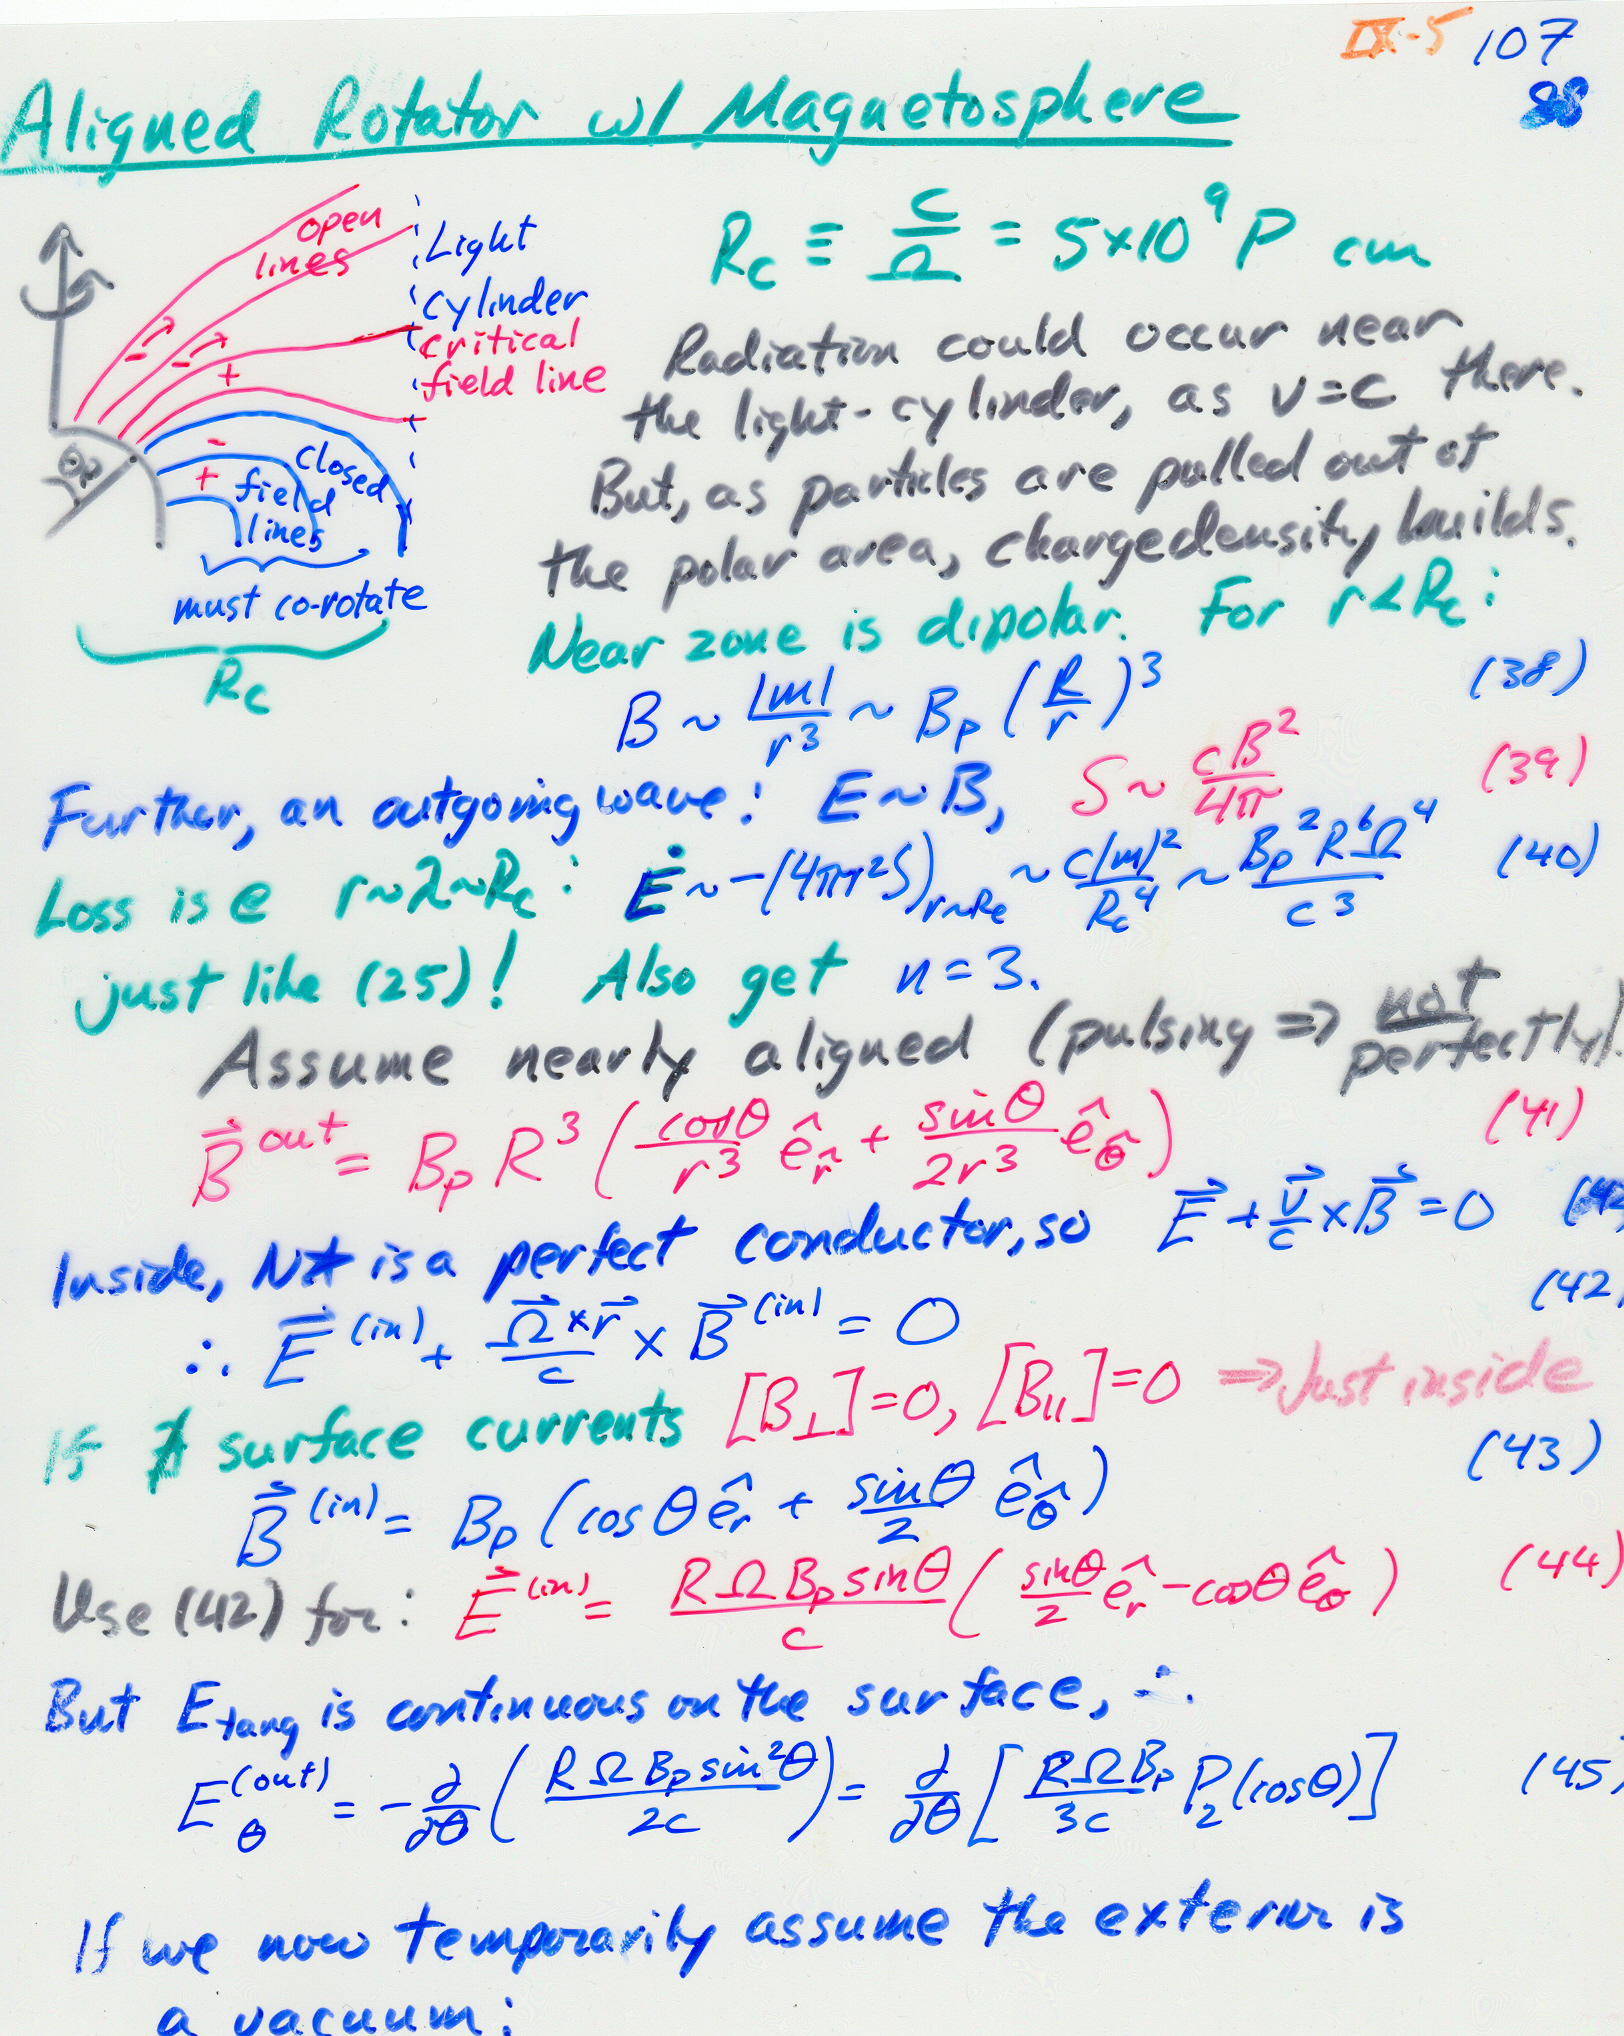 IX-5 107
88
Aligned Rotator w/ Magnetosphere
open
lines
Light
cylinder
critical
field line
- - +
- +
closed
field
lines
θp
must co-rotate
Rc
Rc ≡ c/Ω = 5×10⁹ P cm
Radiation could occur near
the light-cylinder, as v=c there.
But, as particles are pulled out of
the polar area, charge density builds.
Near zone is dipolar. For r<Rc:
B ~ |m|/r³ ~ Bp (R/r)³ (38)
Further, an outgoing wave: E~B, S~ cB²/4π (39)
Loss is @ r~λ~Rc: Ė ~ -(4πr²S)r~Rc ~ c|m|²/Rc⁴ ~ Bp²R⁶Ω⁴/c³ (40)
just like (25)! Also get n=3.
Assume nearly aligned (pulsing => not perfectly).
B⃗ out = Bp R³ (cosθ/r³ ê_r̂ + sinθ/2r³ ê_θ̂) (41)
Inside, N★ is a perfect conductor, so E⃗ + v⃗/c × B⃗ = 0
∴ E⃗ (in) + Ω⃗×r⃗/c × B⃗ (in) = 0 (42)
If ∄ surface currents [B⊥]=0, [B||]=0 => Just inside
B⃗ (in) = Bp (cosθ ê_r + sinθ/2 ê_θ̂) (43)
Use (42) for: E⃗ (in) = RΩBp sinθ/c (sinθ/2 ê_r - cosθ ê_θ) (44)
But Etang is continuous on the surface, ∴
E_θ (out) = -∂/∂θ (RΩBp sin²θ/2c) = ∂/∂θ [RΩBp/3c P₂(cosθ)] (45)
If we now temporarily assume the exterior is
a vacuum: